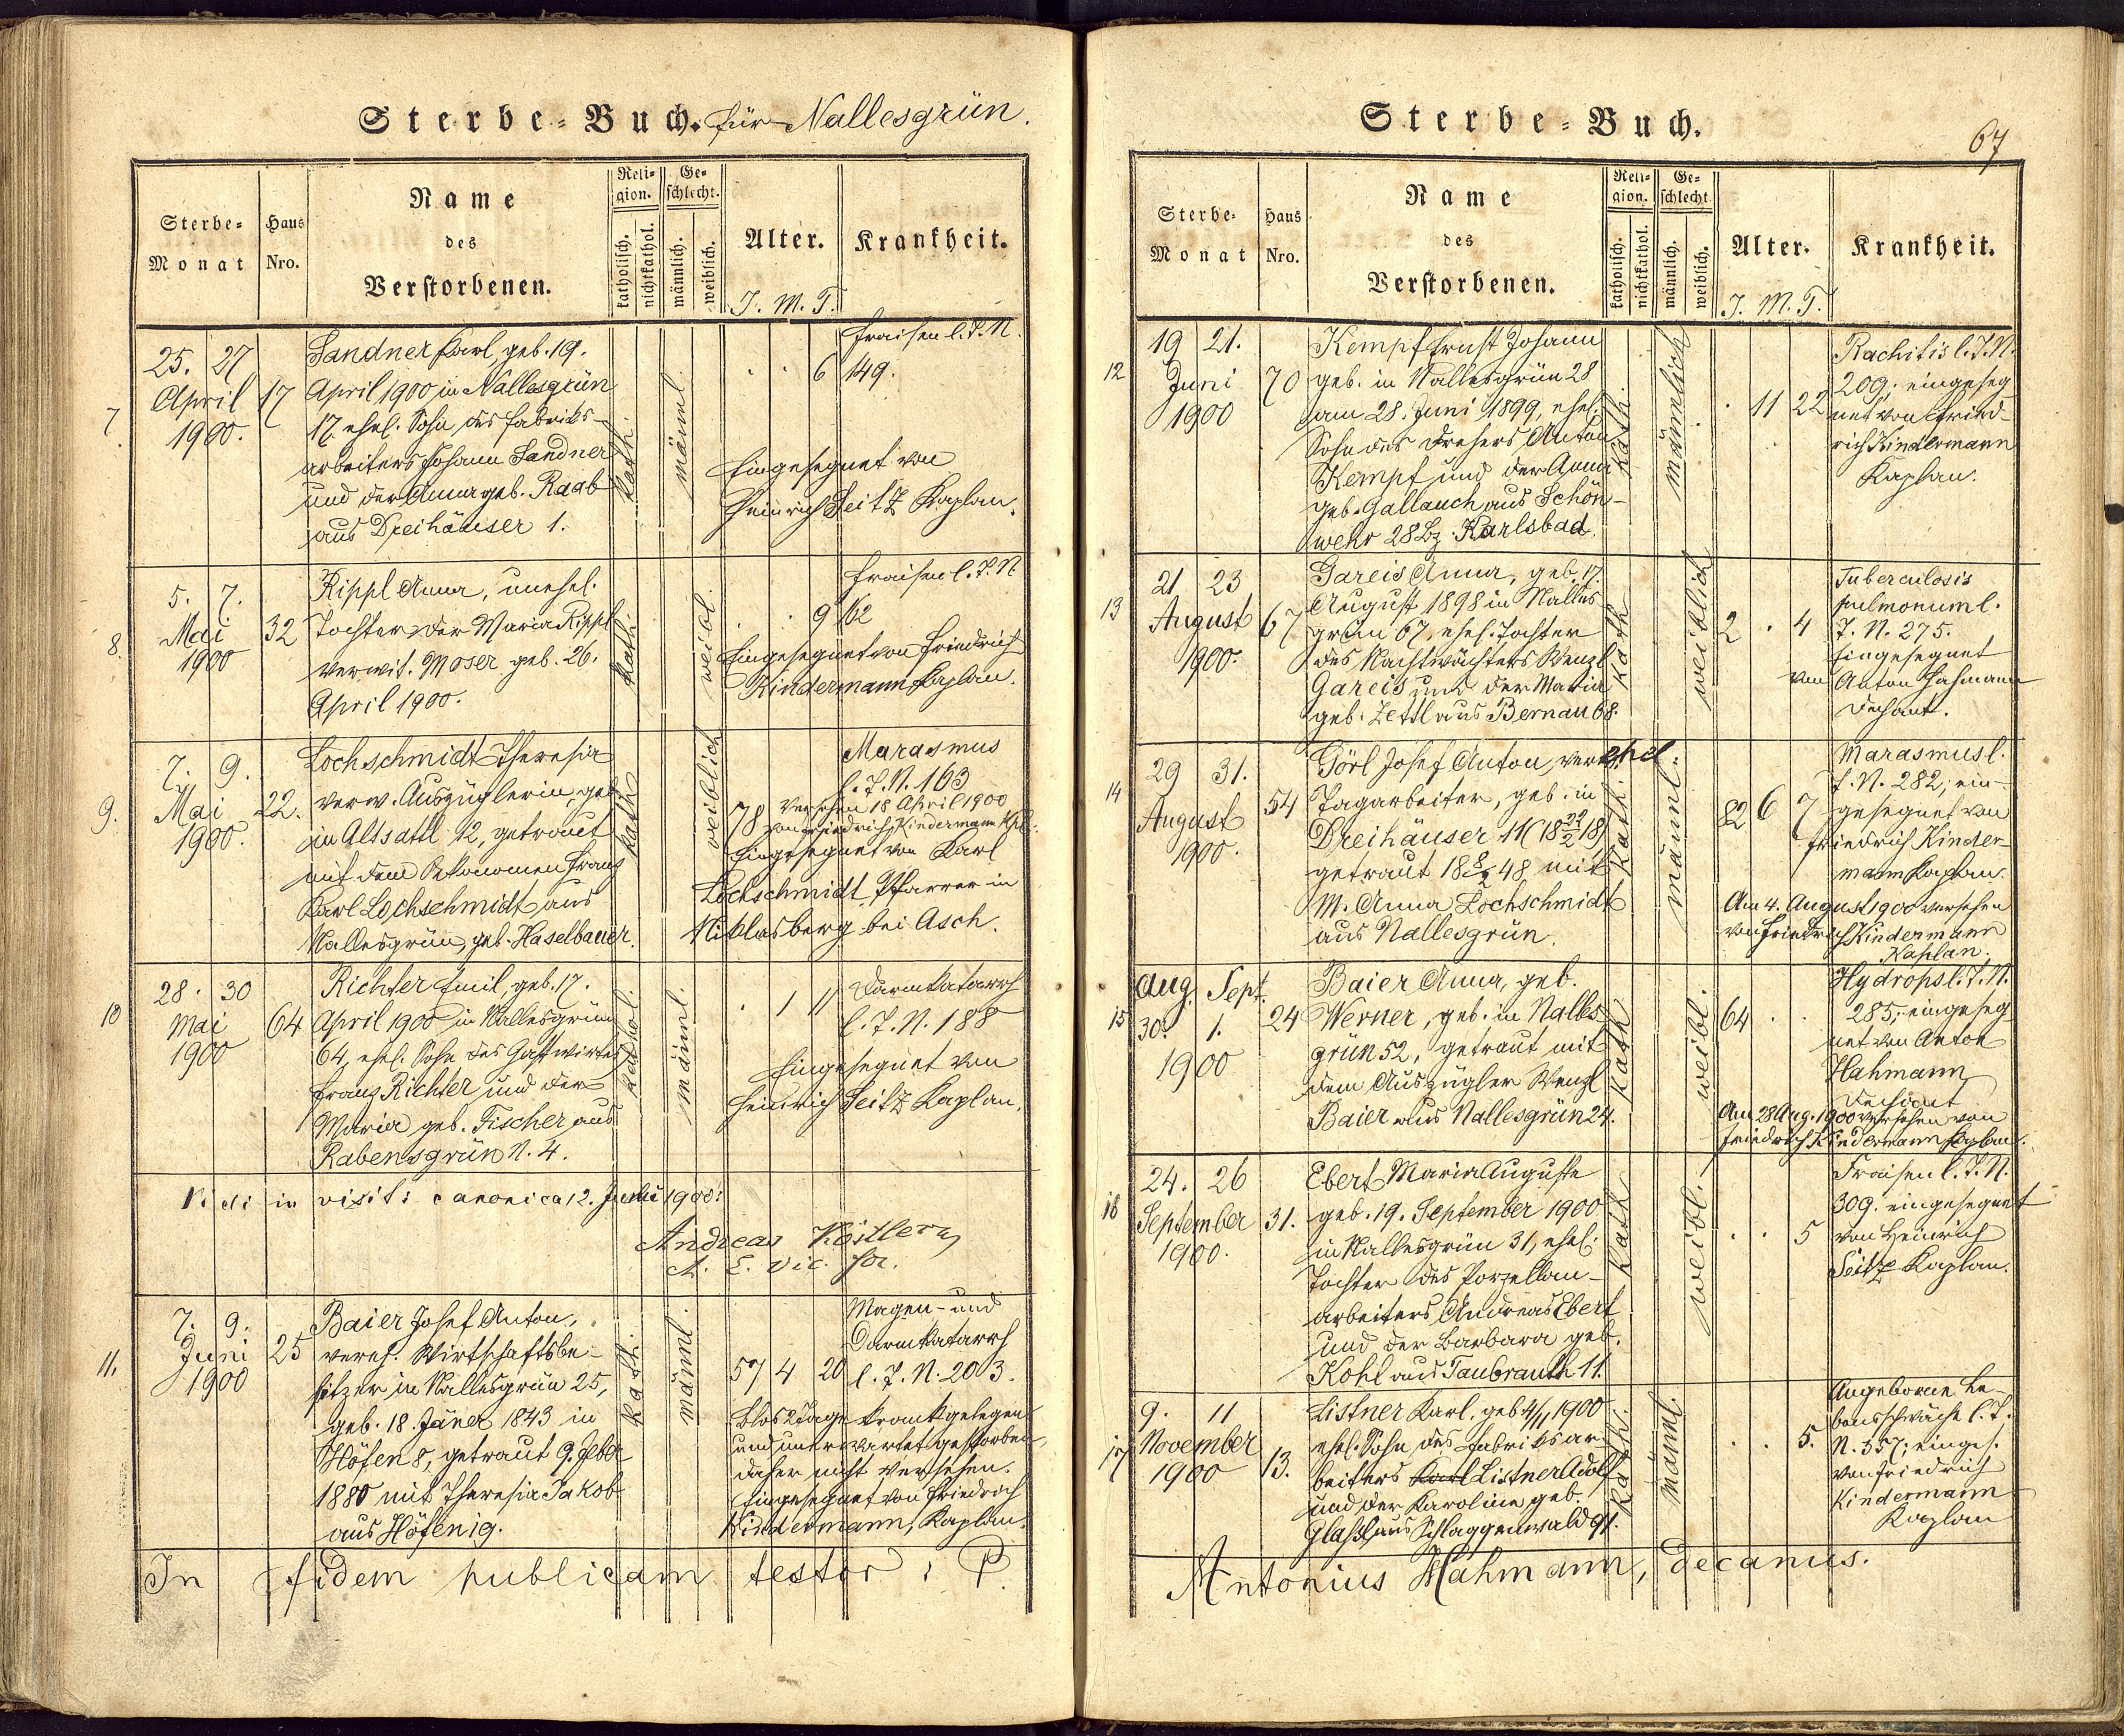 Sterbe-Buch. für Nallesgrün.
Sterbe-Monat
Haus Nro.
Name des Verstorbenen.
Religion.
katholisch.
nichtkathol.
Geschlecht.
männlich.
weiblich.
Alter.
J. M. T.
Krankheit.
7.
25. 27
April
1900.
17
Sandner Karl, geb. 19.
April 1900 in Nallesgrün
17. ehel. Sohn des Fabriks-
arbeiters Johann Sandner
und der Anna geb. Raab
aus Dreihäuser 1.
kath.
männl.
. . 6
Fraisen l. J. N.
149.
Eingesegnet von
Heinrich Seitz Kaplan.
8.
5. 7.
Mai
1900
32
Rippl Anna, unehel.
Tochter der Maria Rippl
verwit. Moser geb. 26.
April 1900.
kath
weibl.
. . 9
Fraisen l. J. N
162
Eingesegnet von Friedrich
Kindermann Kaplan.
9.
7. 9.
Mai
1900.
22.
Lochschmidt Theresia
verw. Auszüglerin, geb
in Altsattl 12, getraut
mit dem Oekonomen Franz
Karl Lochschmidt aus
Nallesgrün, geb. Haselbauer.
kath
weiblich
78
Marasmus
l. J. N. 163
Versehen 18 April 1900
von Friedrich Kindermann Kpl.
Eingesegnet von Karl
Lochschmidt Pfarrer in
Niklasberg bei Asch.
10
28. 30
Mai
1900
64
Richter Emil, geb. 17.
April 1900 in Nallesgrün
64, ehel. Sohn des Gastwirtes
Franz Richter und der
Maria geb. Fischer aus
Rabensgrün N. 4.
kathol.
männl.
. 1 11
Darmkatarrh
l. J. N. 188
Eingesegnet von
Heinrich Seitz Kaplan.
Vidi in visit: canonica 12. Juni 1900:
Andreas Köstler
11.
7. 9.
Juni
1900
25
Baier Josef Anton,
vereh. Wirtschaftsbe-
sitzer in Nallesgrün 25,
geb. 18. Jäner 1843 in
Höfen 8, getraut 9. Feber
1880 mit Theresia Jakob
aus Höfen 19.
kath.
männl.
57 4 20
Magen- und
Darmkatarrh
l. J. N. 203.
Blos 2 Tage krank gelegen
und unerwartet gestorben,
daher nicht versehen.
Eingesegnet von Friedrich
Kindermann, Kaplan.
In fidem publicam testor: P.
Sterbe-Buch.
67
Sterbe-Monat
Haus Nro.
Name des Verstorbenen.
Religion.
katholisch.
nichtkathol.
Geschlecht
männlich.
weiblich.
Alter.
J. M. T.
Krankheit.
12
19 21.
Juni
1900
70
Kempf Ernst Johann
geb. in Nallesgrün 28
am 28. Juni 1899, ehel.
Sohn des Drehers Anton
Kempf und der Anna
geb. Gallauch aus Schön-
wehr 28 Bz. Karlsbad.
kath.
männlich
. 11 22
Rachitis l. J. N.
209; eingeseg
net von Fried-
rich Kindermann
Kaplan.
13
21 23
August
1900.
67
Gareis Anna, geb. 17.
August 1898 in Nalles-
grün 67, ehel. Tochter
des Nachtwächters Wenzl
Gareis und der Maria
geb. Zettl aus Bernau 68.
kath
weiblich
2 . 4
Tuberculosis
pulmonum l.
J. N. 275.
Eingesegnet
von Anton Hahmann
Dechant.
14
29 31.
August
1900.
54
Görl Josef Anton, verehel.
Tagarbeiter, geb. in
Dreihäuser 11 (18 22/2 18)
getraut 18 8/2 48 mit
M. Anna Lochschmidt
aus Nallesgrün.
kath
männl.
82 6 7
Marasmus l.
J. N. 282; ein-
gesegnet von
Friedrich Kinder-
mann Kaplan.
Am 4. August 1900 versehen
von Friedrich Kindermann
Kaplan.
15
Aug. Sept.
30. 1.
1900
24
Baier Anna, geb.
Werner, geb. in Nalles
grün 52, getraut mit
dem Auszügler Wenzl
Baier aus Nallesgrün 24.
kath
weibl.
64 . .
Hydrops l. J. N.
285; eingeseg
net von Anton
Hahmann
Dechant
Am 28 Aug. 1900 versehen von
Friedrich Kindermann Kaplan.
16
24. 26
September
1900.
31.
Ebert Maria Auguste
geb. 19. September 1900
in Nallesgrün 31, ehel.
Tochter des Porzellan-
arbeiters Andreas Ebert
und der Barbara geb.
Kohl aus Taubrauth 11.
kath
weibl.
. . 5
Fraisen l. J. N.
309. eingesegnet
von Heinrich
Seitz Kaplan.
17
9. 11
November
1900
13.
Listner Karl, geb 4/11 1900
ehel. Sohn des Fabriksar-
beiters Karl Listner Adolf
und der Karoline geb.
Glassl aus Schlaggenwald 91.
kath.
männl.
. . 5.
Angeborne Le-
bensschwäche l. J.
N. 357; einges.
von Friedrich
Kindermann
Kaplan
Antonius Hahmann, decanus.